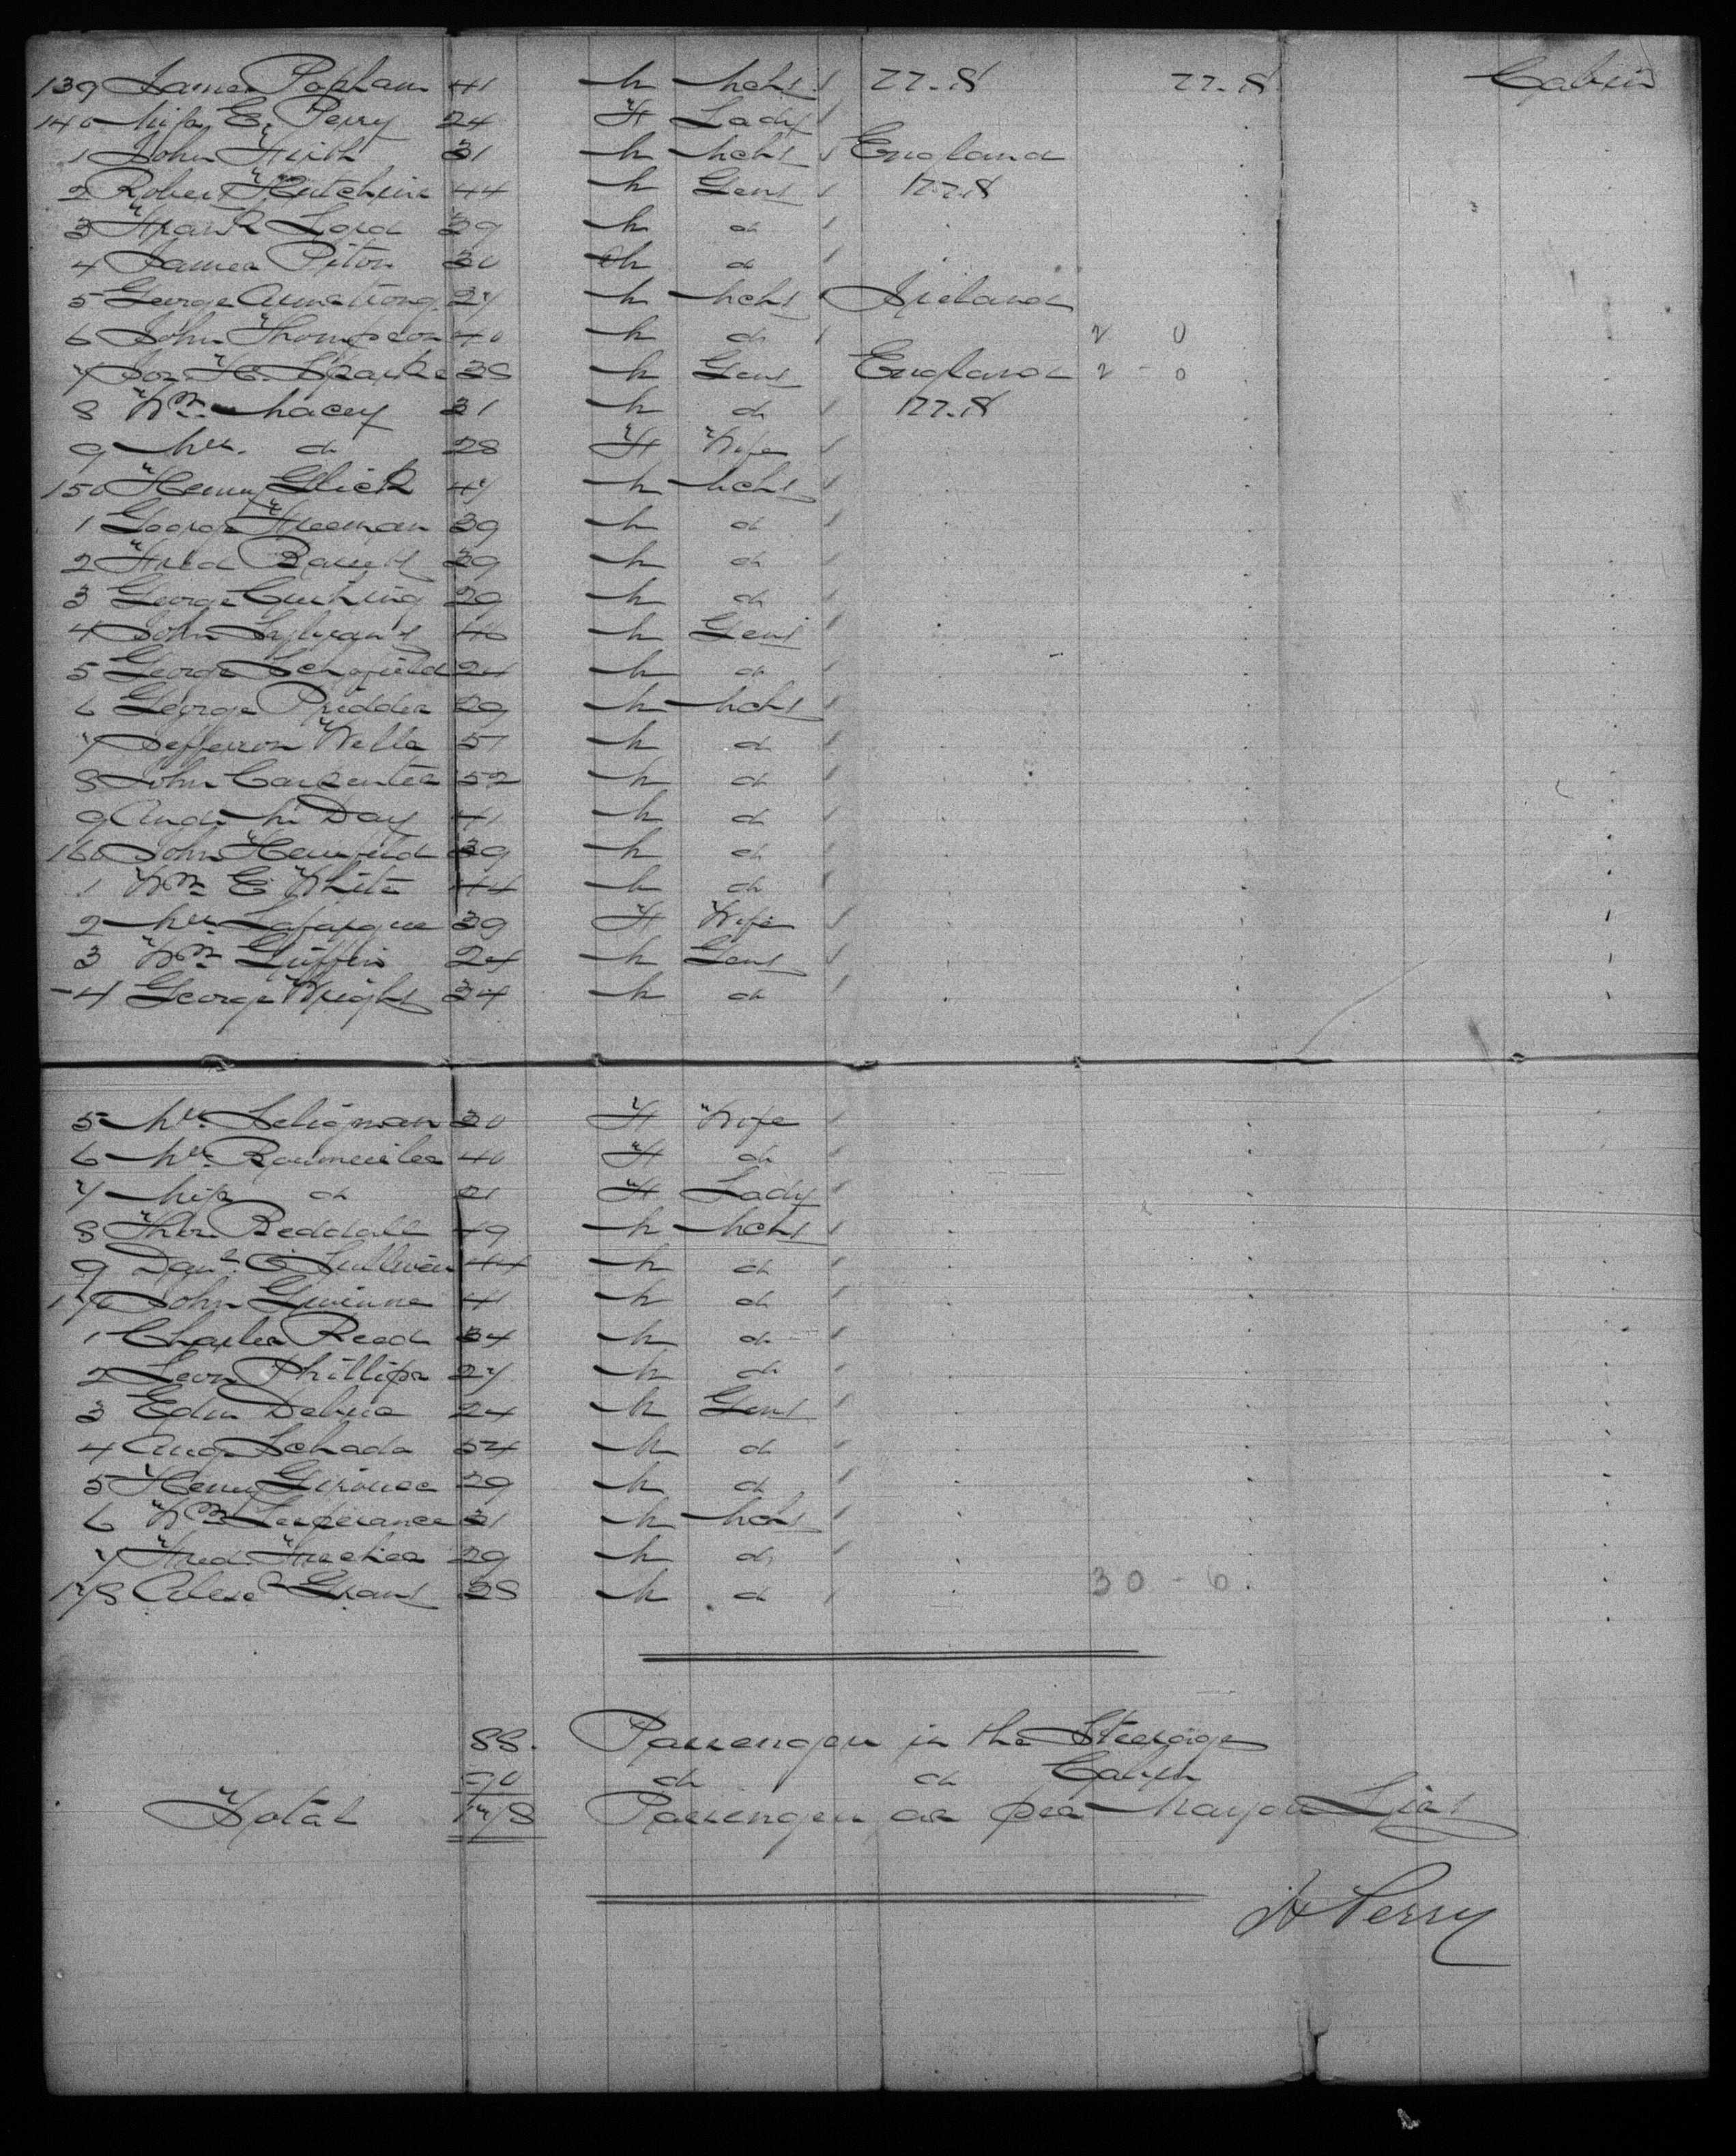 139 James Popham 41 M Mcht U.S U.S Cabin
140 Miss E. Perry 24 F Lady
1 John Firth 31 M Mcht England
2 Robert Hutchins 44 M Gent U.S
3 Frank Lord 39 M do
4 James Piton 30 M do
5 George Armstrong 27 M Mcht Ireland
6 John Thompson 40 M do 2 0
7 Jos. H. 38 M Gent England 2 - 0
8 Wm Macey 31 M do U.S
9 Mrs. do 28 F Wife
150 Henry Glick 47 M Mcht
1 George Freeman 39 M do
2 Fred 29 M do
3 George Cushing 29 M do
4 John 46 M Gent
5 George Schofield 24 M do
6 George Pridden 29 M Mcht
7 Jefferson Wells 51 M do
8 John Carpenter 52 M do
9 And. M Day 41 M do
160 John 39 M do
1 Wm E White 44 M do
2 Mrs. Lafargue 39 F Wife
3 Wm Griffin 24 M Gent
4 George Wright 34 M do
5 Mrs. Seligman 30 F Wife
6 Mrs. 40 F do
7 Miss do 21 F Lady
8 Thos. Beddall 49 M Mcht
9 Danl. O Sullivan 44 M do
170 John 41 M do
1 Charles Reed 34 M do
2 Leon Phillips 27 M do
3 Edm 24 M Gent
4 Aug. Schada 54 M do
5 Henry 29 M do
6 Wm Lesperance 31 M Mcht
7 Fred. 29 M do
178 Alexr Grant 28 M do 30 - 6
88. Passengers in the Steerage
90 do do Cabin
Total 178 Passengers as per Mayor List
H Perry